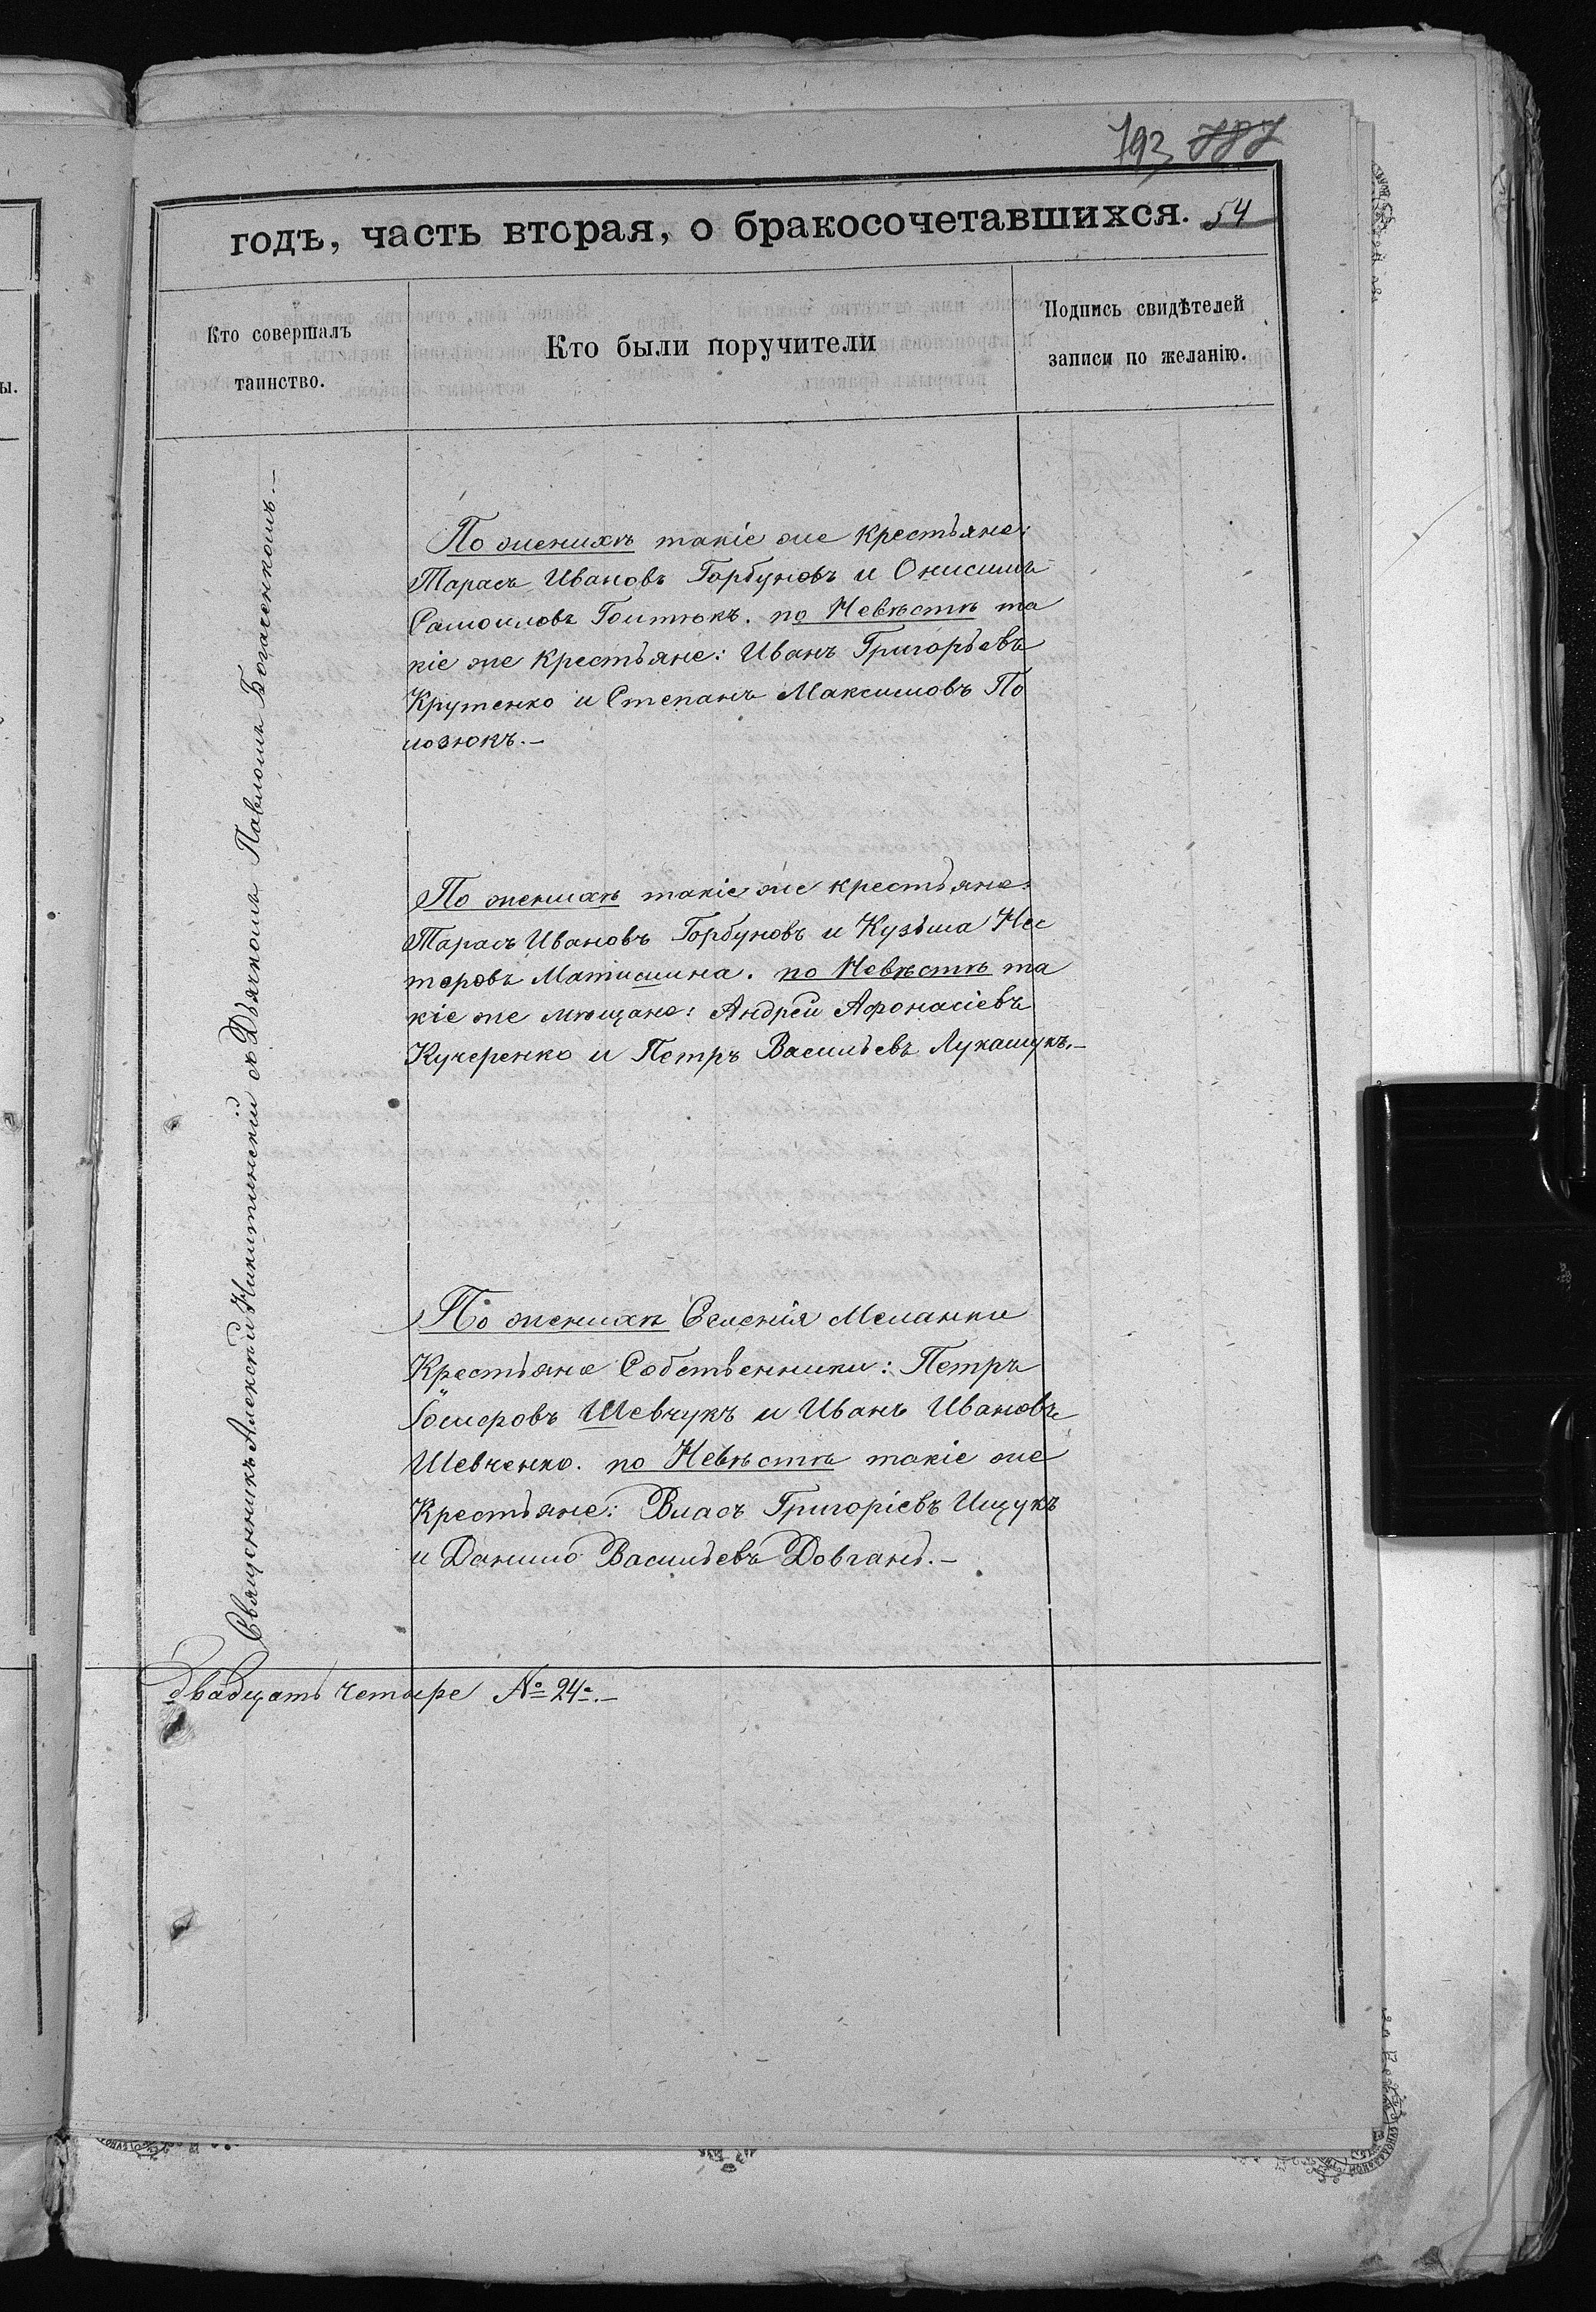 793 787
годъ, часть вторая, о бракосочетавшихся. 54
Кто совершалъ
таинство.
Кто были поручители
Подпись свидѣтелей
записи по желанію.
Священникъ Алексѣй Никитинскій съ Дьячкомъ Павломъ Богаченкомъ.—
По женихѣ такіе же крестьяне:
Тарасъ Ивановъ Горбуновъ и Онисимъ
Самоиловъ Гонтюкъ. по Невѣстѣ та
кіе же крестьяне: Иванъ Григорьевъ
Крутенко и Степанъ Максимовъ По
лозюкъ.—
По женихѣ такіе же крестьяне:
Тарасъ Ивановъ Горбуновъ и Кузьма Нес
теровъ Матишина. по Невѣстѣ та
кіе же мѣщане: Андрей Афонасіевъ
Кучеренко и Петръ Васильевъ Лукашукъ.—
По женихѣ Селенія Меланки
Крестьяне Собственники: Петръ
Шевчукъ и Иванъ Ивановъ
Шевченко. по Невѣстѣ такіе же
Крестьяне: Власъ Григоріевъ Ищукъ
и Данило Васильевъ Довгань.—
двадцать четыре № 24.—
ы.